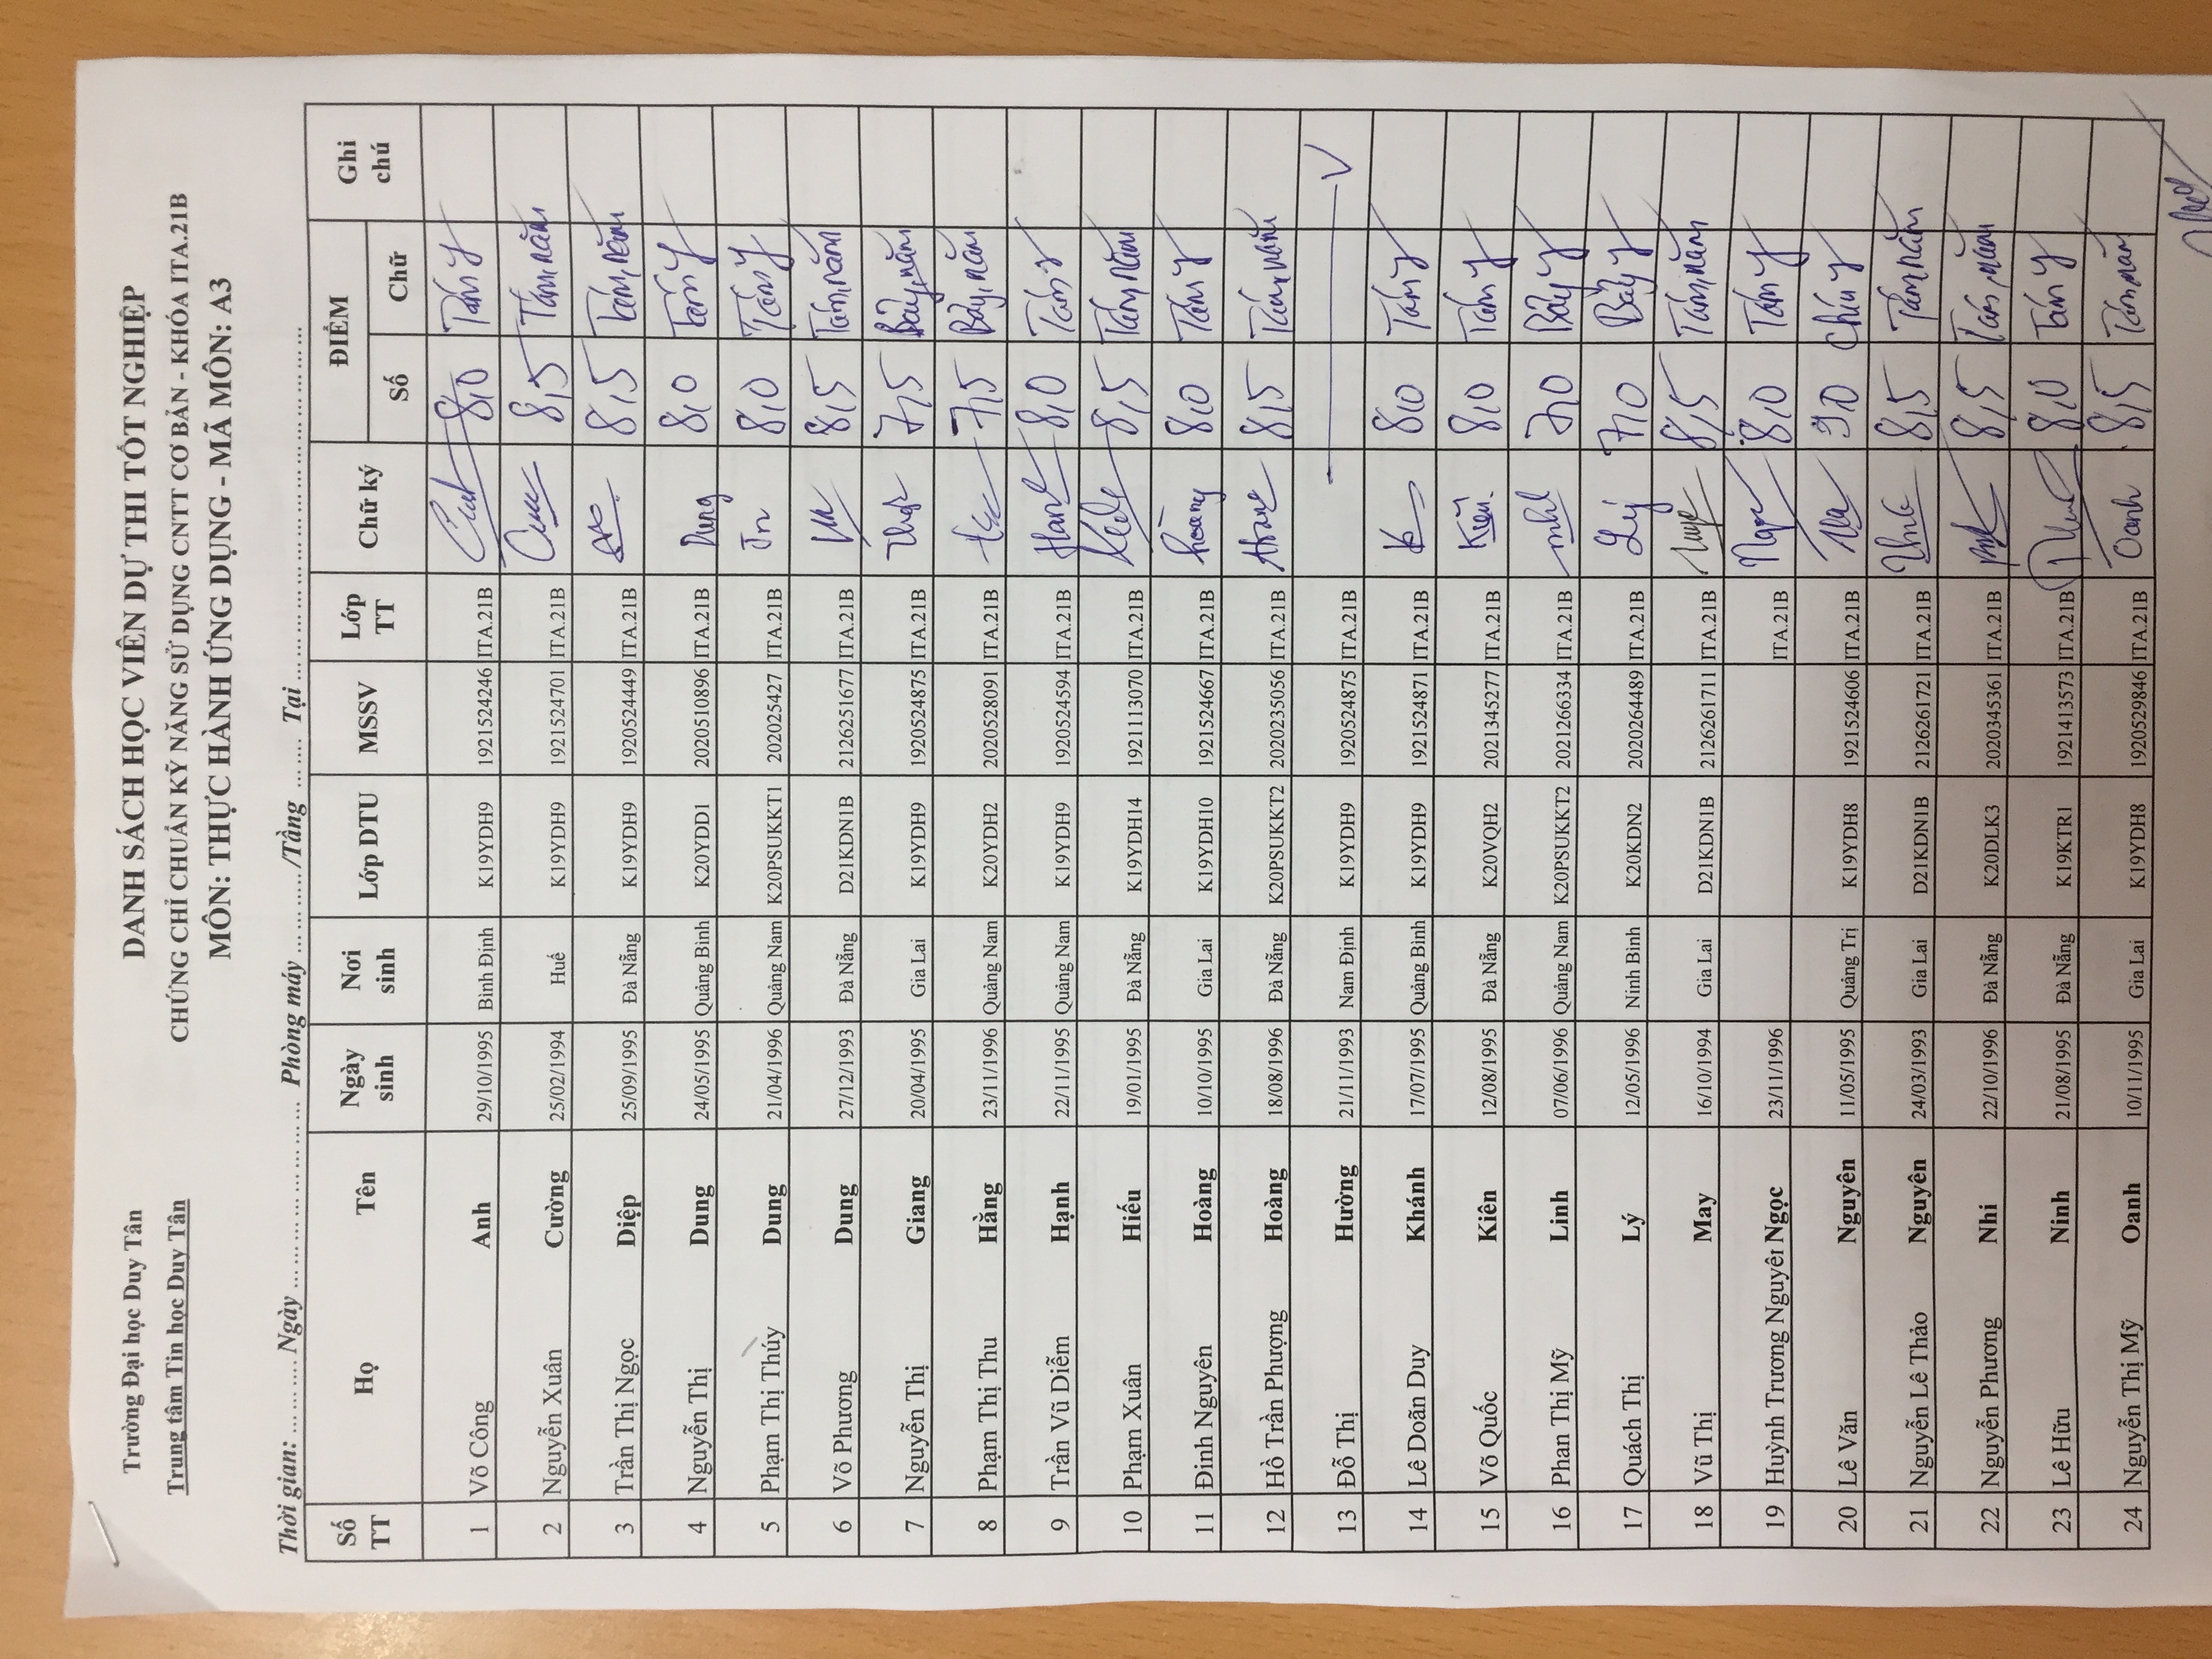 Trường Đại học Duy Tân
Trung tâm Tin học Duy Tân
DANH SÁCH HỌC VIÊN DỰ THI TỐT NGHIỆP
CHỨNG CHỈ CHUẨN KỸ NĂNG SỬ DỤNG CNTT CƠ BẢN - KHÓA ITA.21B
MÔN: THỰC HÀNH ỨNG DỤNG - MÃ MÔN: A3
Thời gian: ………… Ngày ………………… Phòng máy …………/Tầng …… Tại ……………………………
Số TT Họ Tên Ngày sinh Nơi sinh Lớp DTU MSSV Lớp TT Chữ ký ĐIỂM Số Chữ Ghi chú
1 Võ Công Anh 29/10/1995 Bình Định K19YDH9 1921524246 ITA.21B 8,0 Tám y
2 Nguyễn Xuân Cường 25/02/1994 Huế K19YDH9 1921524701 ITA.21B 8,5 Tám, năm
3 Trần Thị Ngọc Diệp 25/09/1995 Đà Nẵng K19YDH9 1920524449 ITA.21B 8,5 Tám, năm
4 Nguyễn Thị Dung 24/05/1995 Quảng Bình K20YDD1 2020510896 ITA.21B Dung 8,0 Tám y
5 Phạm Thị Thúy Dung 21/04/1996 Quảng Nam K20PSUKKT1 202025427 ITA.21B 8,0 Tám y
6 Võ Phương Dung 27/12/1993 Đà Nẵng D21KDN1B 2126251677 ITA.21B 8,5 Tám, năm
7 Nguyễn Thị Giang 20/04/1995 Gia Lai K19YDH9 1920524875 ITA.21B 7,5 Bảy, năm
8 Phạm Thị Thu Hằng 23/11/1996 Quảng Nam K20YDH2 2020528091 ITA.21B 7,5 Bảy, năm
9 Trần Vũ Diễm Hạnh 22/11/1995 Quảng Nam K19YDH9 1920524594 ITA.21B 8,0 Tám y
10 Phạm Xuân Hiếu 19/01/1995 Đà Nẵng K19YDH14 1921113070 ITA.21B 8,5 Tám, năm
11 Đinh Nguyên Hoàng 10/10/1995 Gia Lai K19YDH10 1921524667 ITA.21B hoàng 8,0 Tám y
12 Hồ Trần Phượng Hoàng 18/08/1996 Đà Nẵng K20PSUKKT2 2020235056 ITA.21B 8,5 Tám, năm
13 Đỗ Thị Hường 21/11/1993 Nam Định K19YDH9 1920524875 ITA.21B V
14 Lê Doãn Duy Khánh 17/07/1995 Quảng Bình K19YDH9 1921524871 ITA.21B 8,0 Tám y
15 Võ Quốc Kiên 12/08/1995 Đà Nẵng K20VQH2 2021345277 ITA.21B Kiên 8,0 Tám y
16 Phan Thị Mỹ Linh 07/06/1996 Quảng Nam K20PSUKKT2 2021266334 ITA.21B 7,0 Bảy y
17 Quách Thị Lý 12/05/1996 Ninh Bình K20KDN2 2020264489 ITA.21B Lý 7,0 Bảy y
18 Vũ Thị May 16/10/1994 Gia Lai D21KDN1B 2126261711 ITA.21B 8,5 Tám, năm
19 Huỳnh Trương Nguyệt Ngọc 23/11/1996 ITA.21B 8,0 Tám y
20 Lê Văn Nguyên 11/05/1995 Quảng Trị K19YDH8 1921524606 ITA.21B 9,0 chín y
21 Nguyễn Lê Thảo Nguyên 24/03/1993 Gia Lai D21KDN1B 2126261721 ITA.21B 8,5 Tám năm
22 Nguyễn Phương Nhi 22/10/1996 Đà Nẵng K20DLK3 2020345361 ITA.21B 8,5 Tám, năm
23 Lê Hữu Ninh 21/08/1995 Đà Nẵng K19KTR1 1921413573 ITA.21B 8,0 Tám y
24 Nguyễn Thị Mỹ Oanh 10/11/1995 Gia Lai K19YDH8 1920529846 ITA.21B Oanh 8,5 Tám năm